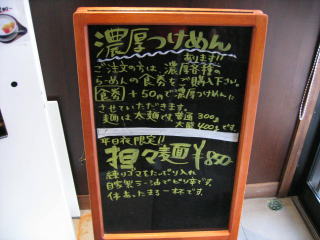 濃厚つけめん
あります!!
ご注文の方は、濃厚
らーめんの食券をご購入下さい。
食券 + 50円で濃厚つけめんに
させていただきます。
麺は太麺で普通300g
大盛400gです。
平日夜限定!!
担々麺 ¥850
練りゴマをたっぷり入れ
自家製ラー油でピリ辛です。
体あったまる一杯です。